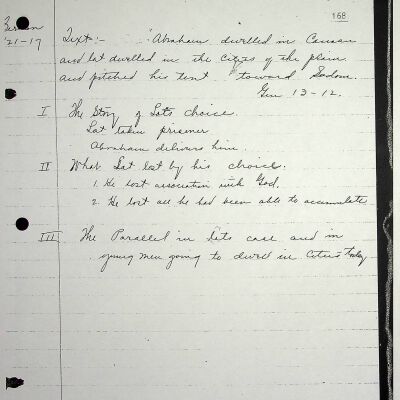 168
Sermon
21-17
Text:- "Abraham dwelled in Canaan
and Lot dwelled in the Cities of the plain
and pitched his tent "toward Sodom.
Gen 13-12.
I The Story of Lots choice.
Lot taken prisoner
Abraham delivers him.
II What Lot lost by his choice.
1. He lost association with God.
2. He lost all he had been able to accumulate
III The Parallel in Lots case and in
young men going to dwell in Cities today